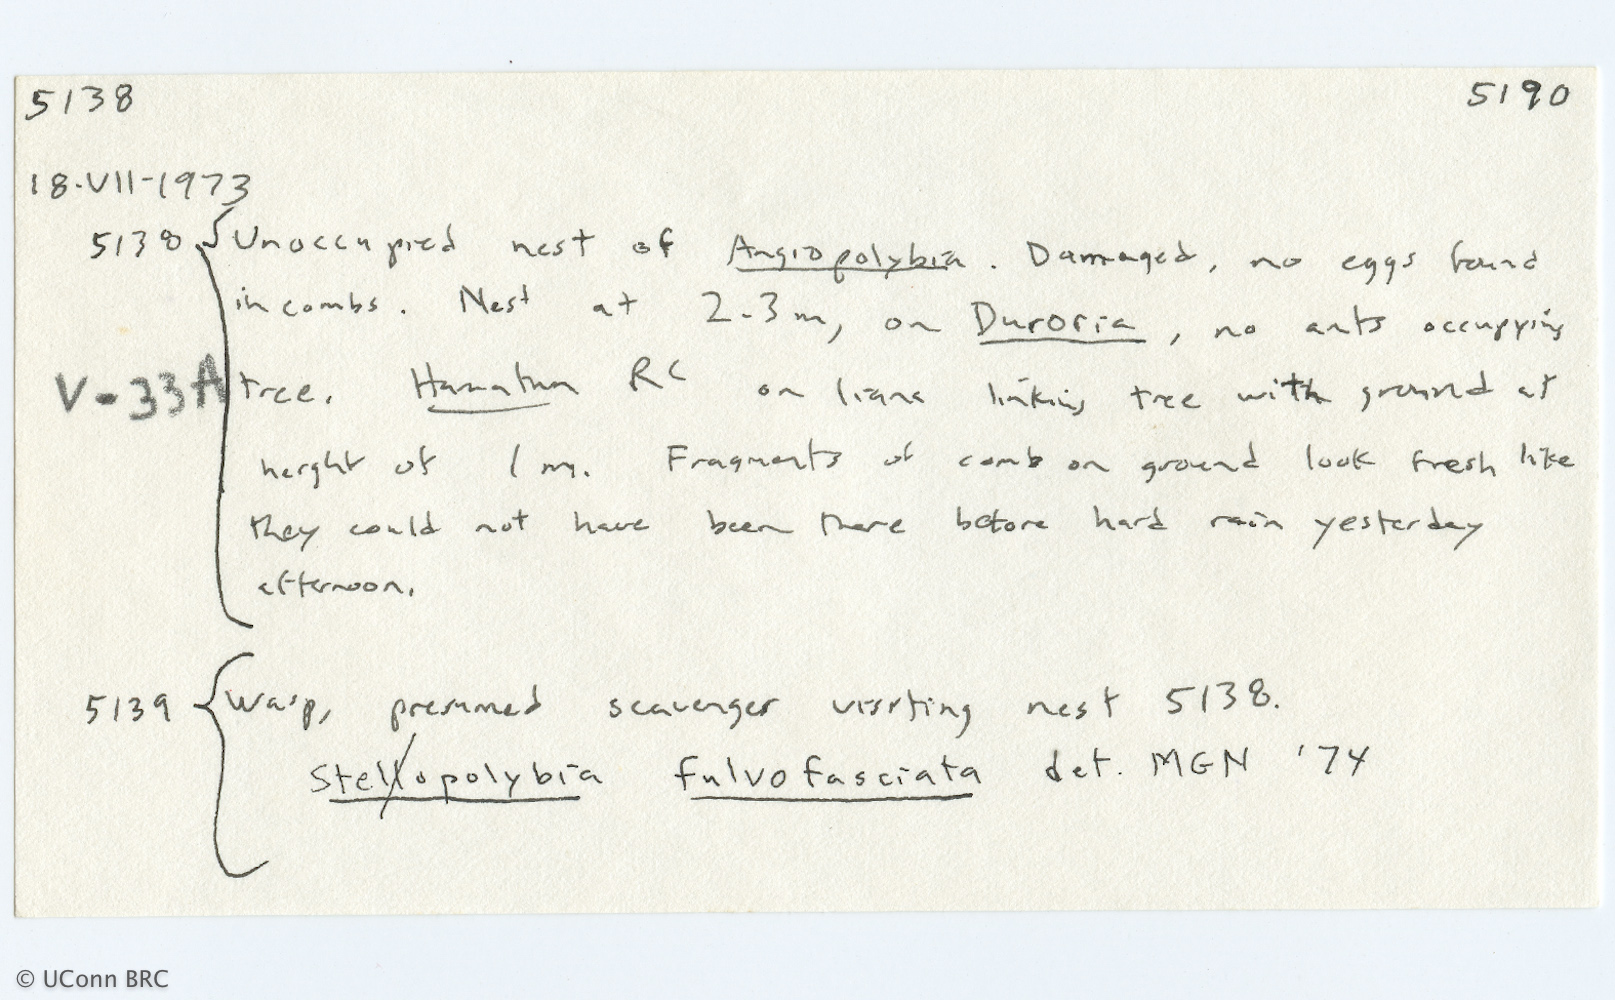 5138 5190
18-VII-1973
5138 Unoccupied nest of Angiopolybia. Damaged, no eggs found
in combs. Nest at 2.3 m, on Duroria, no ants occupying
V-33A tree. Hamatum RC on liana linking tree with ground at
height of 1 m. Fragments of comb on ground look fresh like
they could not have been there before hard rain yesterday
afternoon.
5139 Wasp, presumed scavenger visiting nest 5138.
Stellopolybia fulvofasciata det. MGN '74
© UConn BRC